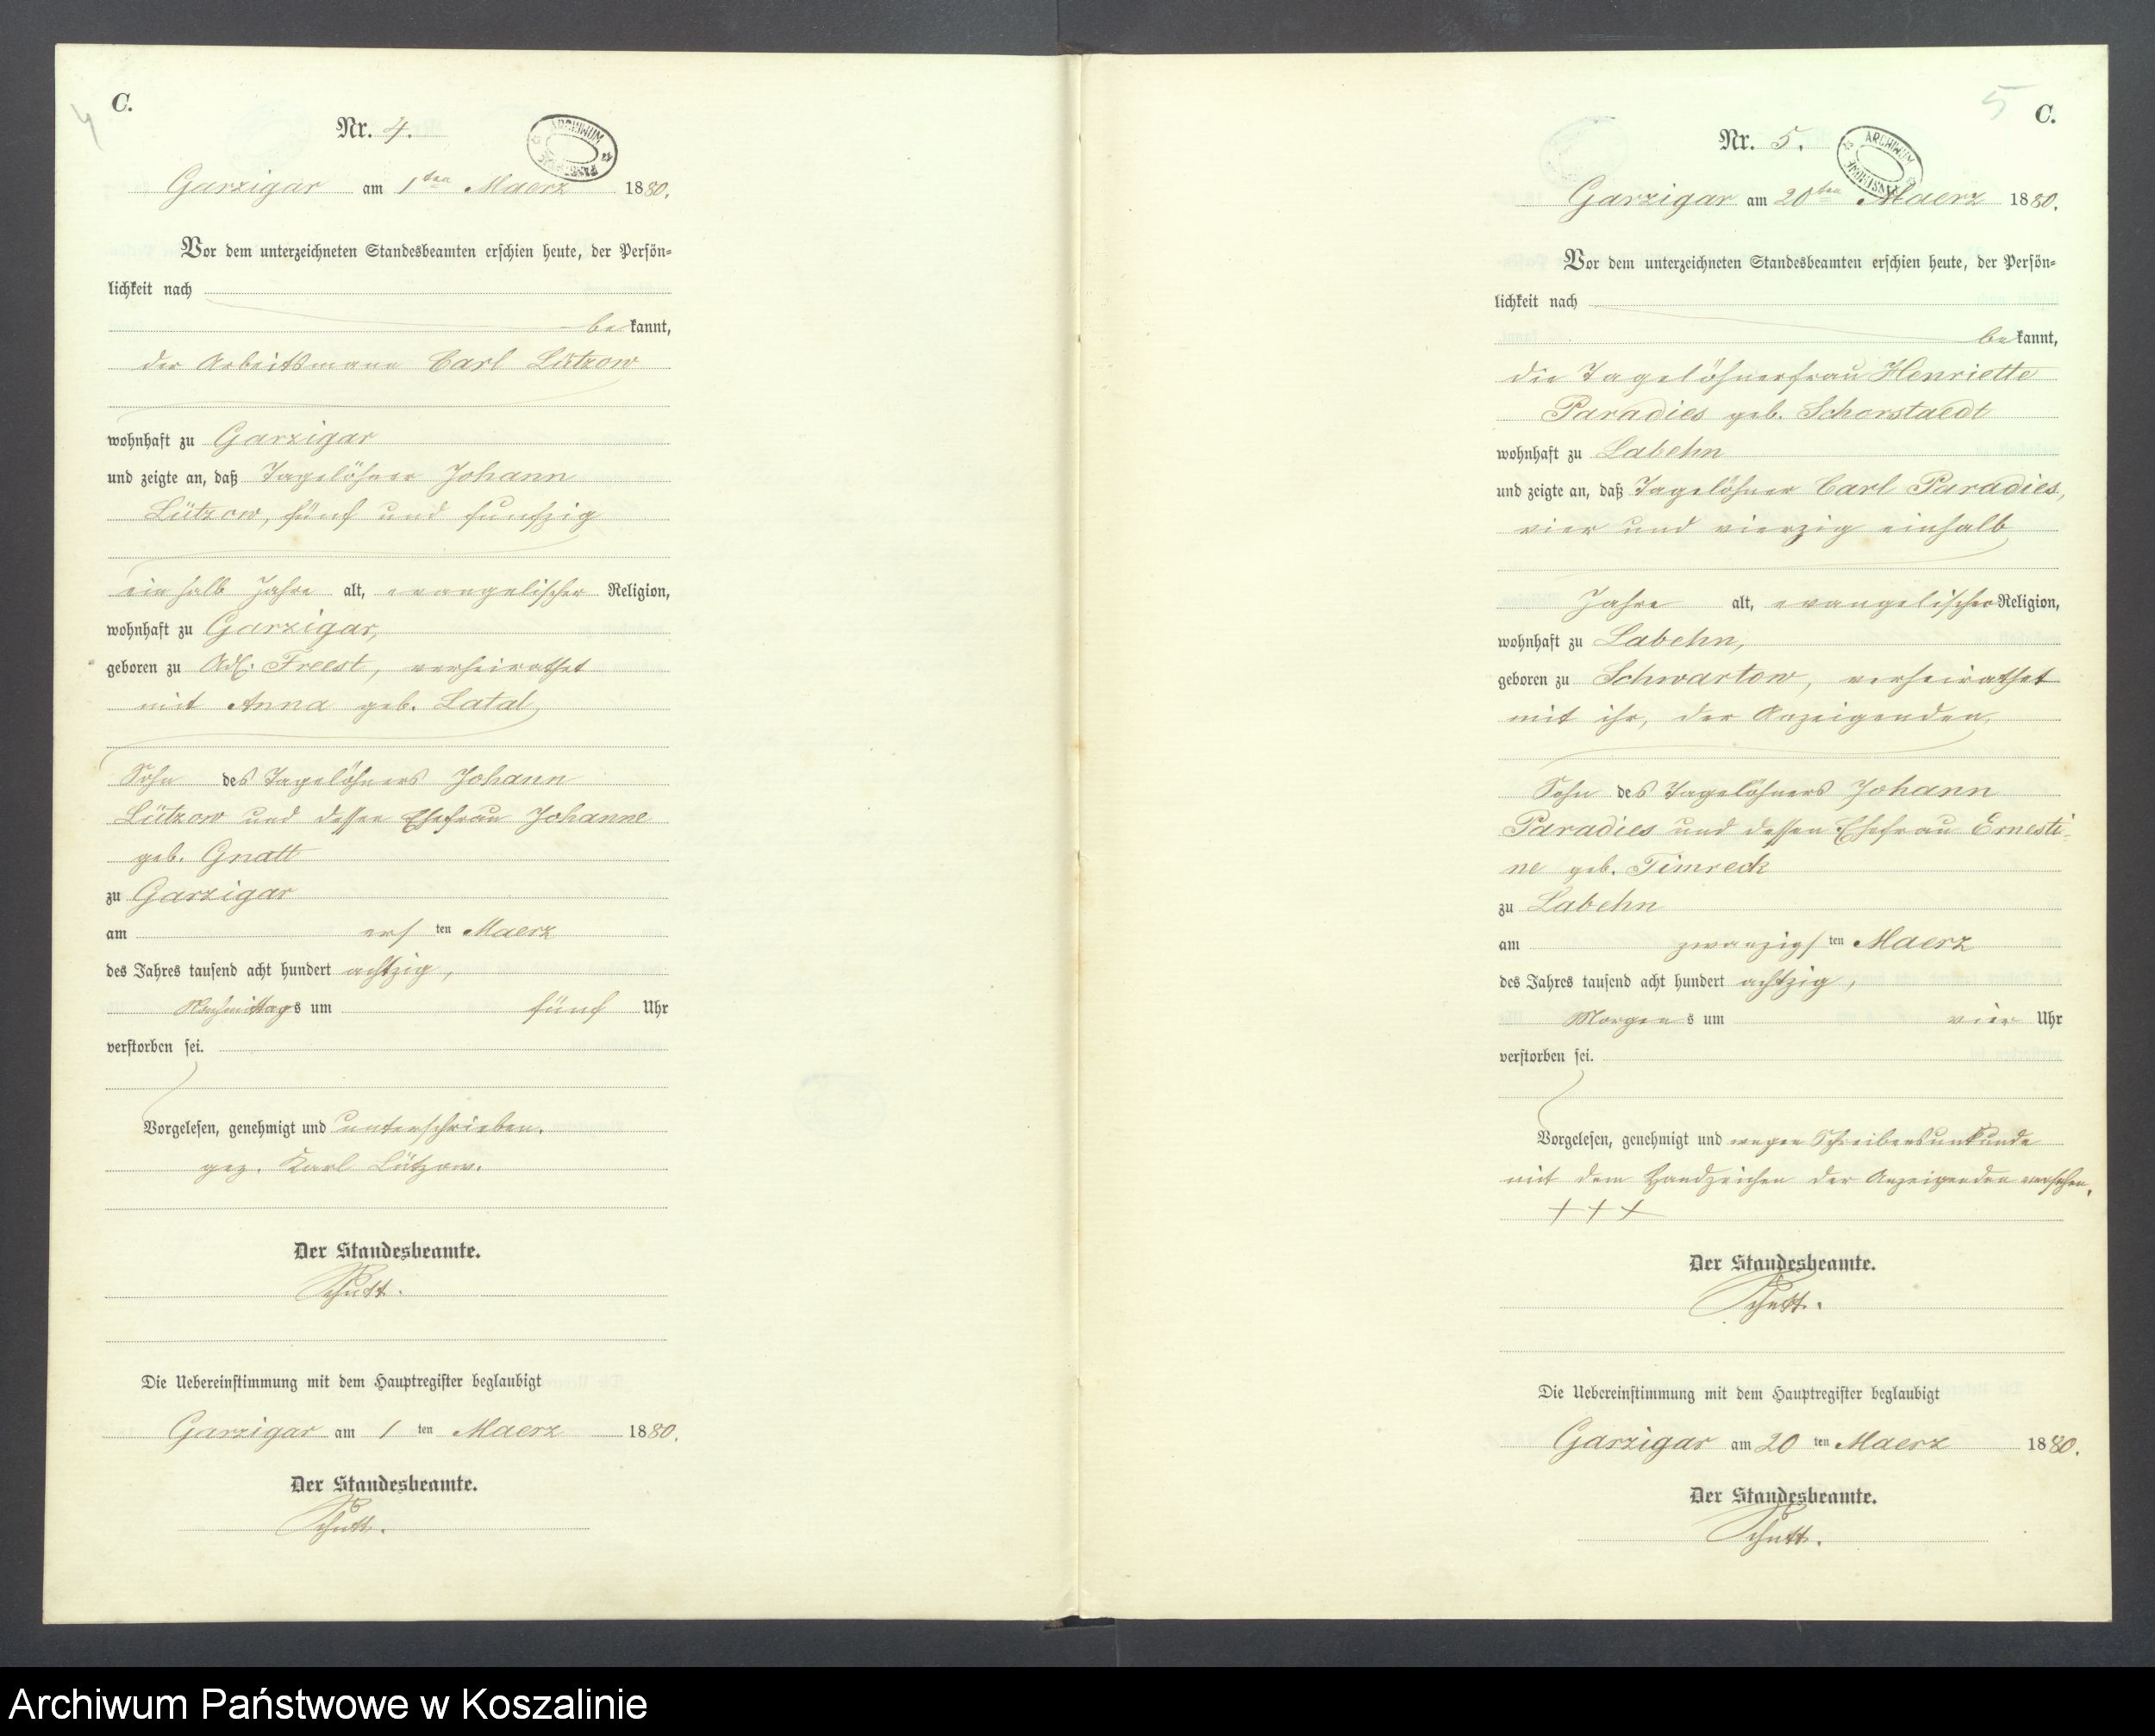 4
C.
Nr. 4.
ARCHIWUM
Garzigar am 1ten Maerz 1880.
Vor dem unterzeichneten Standesbeamten erschien heute, der Persön-
lichkeit nach
bekannt,
der Arbeitsmann Carl Lützow
wohnhaft zu Garzigar
und zeigte an, daß Tagelöhner Johann
Lützow, fünf und funfzig
ein halb Jahre alt, evangelischer Religion,
wohnhaft zu Garzigar,
geboren zu Adl. Freest, verheirathet
mit Anna geb. Latal,
Sohn des Tagelöhners Johann
Lützow und dessen Ehefrau Johanne
geb. Gnatt
zu Garzigar
am ersten Maerz
des Jahres tausend acht hundert achtzig,
Nachmittags um fünf Uhr
verstorben sei.
Vorgelesen, genehmigt und unterschrieben.
gez. Karl Lützow.
Der Standesbeamte.
Schutt.
Die Uebereinstimmung mit dem Hauptregister beglaubigt
Garzigar am 1 ten Maerz 1880.
Der Standesbeamte.
Schutt.
5
C.
Nr. 5.
ARCHIWUM
Garzigar am 20ten Maerz 1880.
Vor dem unterzeichneten Standesbeamten erschien heute, der Persön-
lichkeit nach
bekannt,
die Tagelöhnerfrau Henriette
Paradies geb. Schorstaedt
wohnhaft zu Labehn
und zeigte an, daß Tagelöhner Carl Paradies,
vier und vierzig einhalb
Jahre alt, evangelischer Religion,
wohnhaft zu Labehn,
geboren zu Schwartow, verheirathet
mit ihr, der Anzeigenden,
Sohn des Tagelöhners Johann
Paradies und dessen Ehefrau Ernesti-
ne geb. Timreck
zu Labehn
am zwanzigsten Maerz
des Jahres tausend acht hundert achtzig,
Morgens um vier Uhr
verstorben sei.
Vorgelesen, genehmigt und wegen Schreibensunkunde
mit dem Handzeichen der Anzeigenden versehen.
+++
Der Standesbeamte.
Schutt.
Die Uebereinstimmung mit dem Hauptregister beglaubigt
Garzigar am 20 ten Maerz 1880.
Der Standesbeamte.
Schutt.
Archiwum Państwowe w Koszalinie